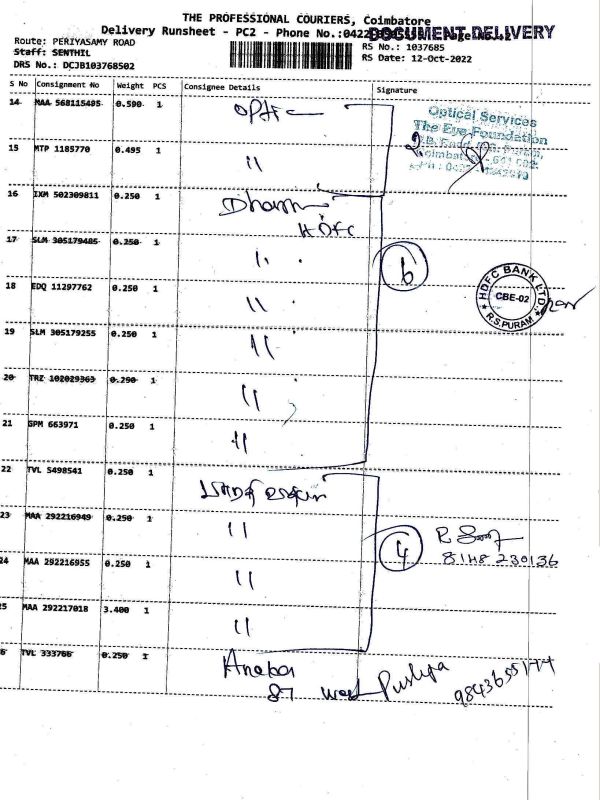 THE PROFESSIONAL COURIERS, Coimbatore
Delivery Runsheet - PC2 - Phone No.:0422
DOCUMENT DELIVERY
Route: PERIYASAMY ROAD
Staff: SENTHIL
DRS No.: DCJB103768502
RS No.: 1037685
RS Date: 12-Oct-2022
S No Consignment No Weight PCS Consignee Details Signature
14 MAA 568115495 0.590 1
Optical Services
The Eye Foundation
15 MTP 1185770 0.495 1 "
16 IXM 502309811 0.250 1
HDFC
17 SLM 305179485 0.250 1 "
6
18 EDQ 11297762 0.250 1 "
HDFC BANK LTD.
CBE-02
R.S.PURAM
19 SLM 305179255 0.250 1 "
20 TRZ 102029363 0.250 1 "
21 SPM 663971 0.250 1 "
22 TVL 5498541 0.250 1
23 MAA 292216949 0.250 1 "
4
8148 230136
24 MAA 292216955 0.250 1 "
25 MAA 292217018 3.400 1 "
26 TVL 333766 0.250 1
Pushpa